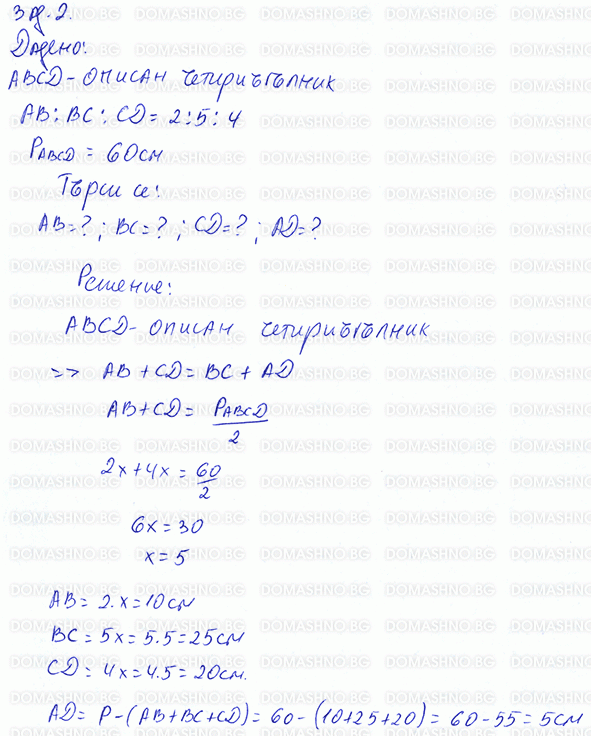 Зад. 2.
Дадено:
ABCD - описан четириъгълник
AB : BC : CD = 2 : 5 : 4
PABCD = 60 см
Търси се:
AB = ? ; BC = ? ; CD = ? ; AD = ?
Решение:
ABCD - описан четириъгълник
=> AB + CD = BC + AD
AB + CD = PABCD / 2
2x + 4x = 60 / 2
6x = 30
x = 5
AB = 2.x = 10 см
BC = 5x = 5.5 = 25 см
CD = 4x = 4.5 = 20 см.
AD = P - (AB + BC + CD) = 60 - (10 + 25 + 20) = 60 - 55 = 5 см